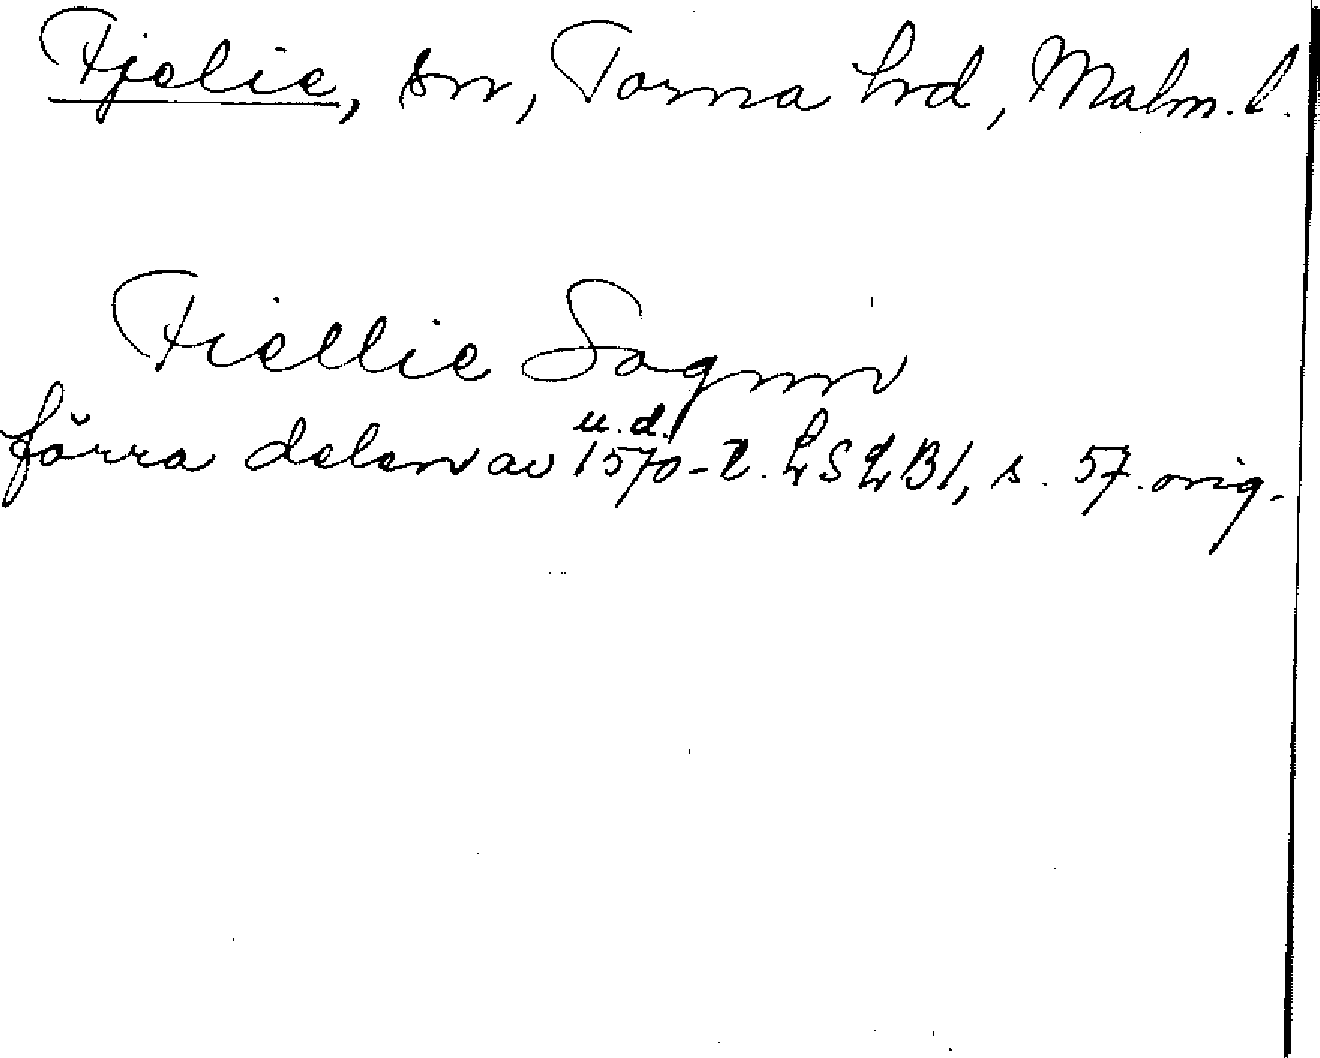 Fjelie, sn, Torna hrd, Malm. l.
Fiellie Sognn
u. d.
förra delen av 1570-t. LSLB1, s. 57. orig.